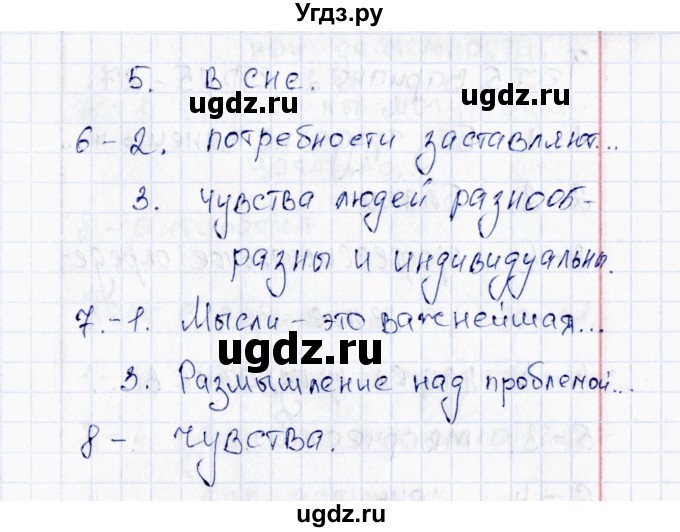 Угдз.ру
5. В сне.
ugdz.ru ugdz.ru
6-2. потребности заставляют...
3. чувства людей разнооб-
разны и индивидуальны.
7.-1. Мысли - это важнейшая...
ugdz.ru
3. Размышление над проблемой...
8 - чувства.
ugdz.ru ugdz.ru